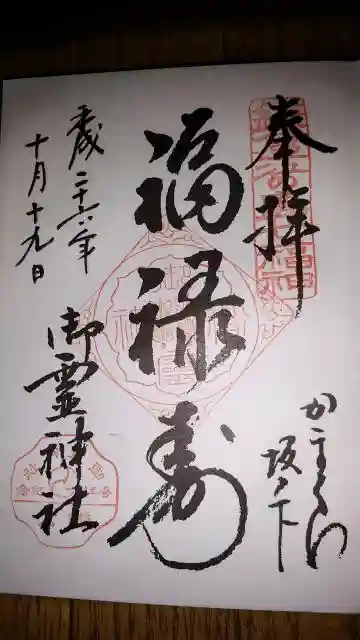 奉拝
かまくら
坂ノ下
福禄寿
御霊神社
平成二十六年
十月十九日